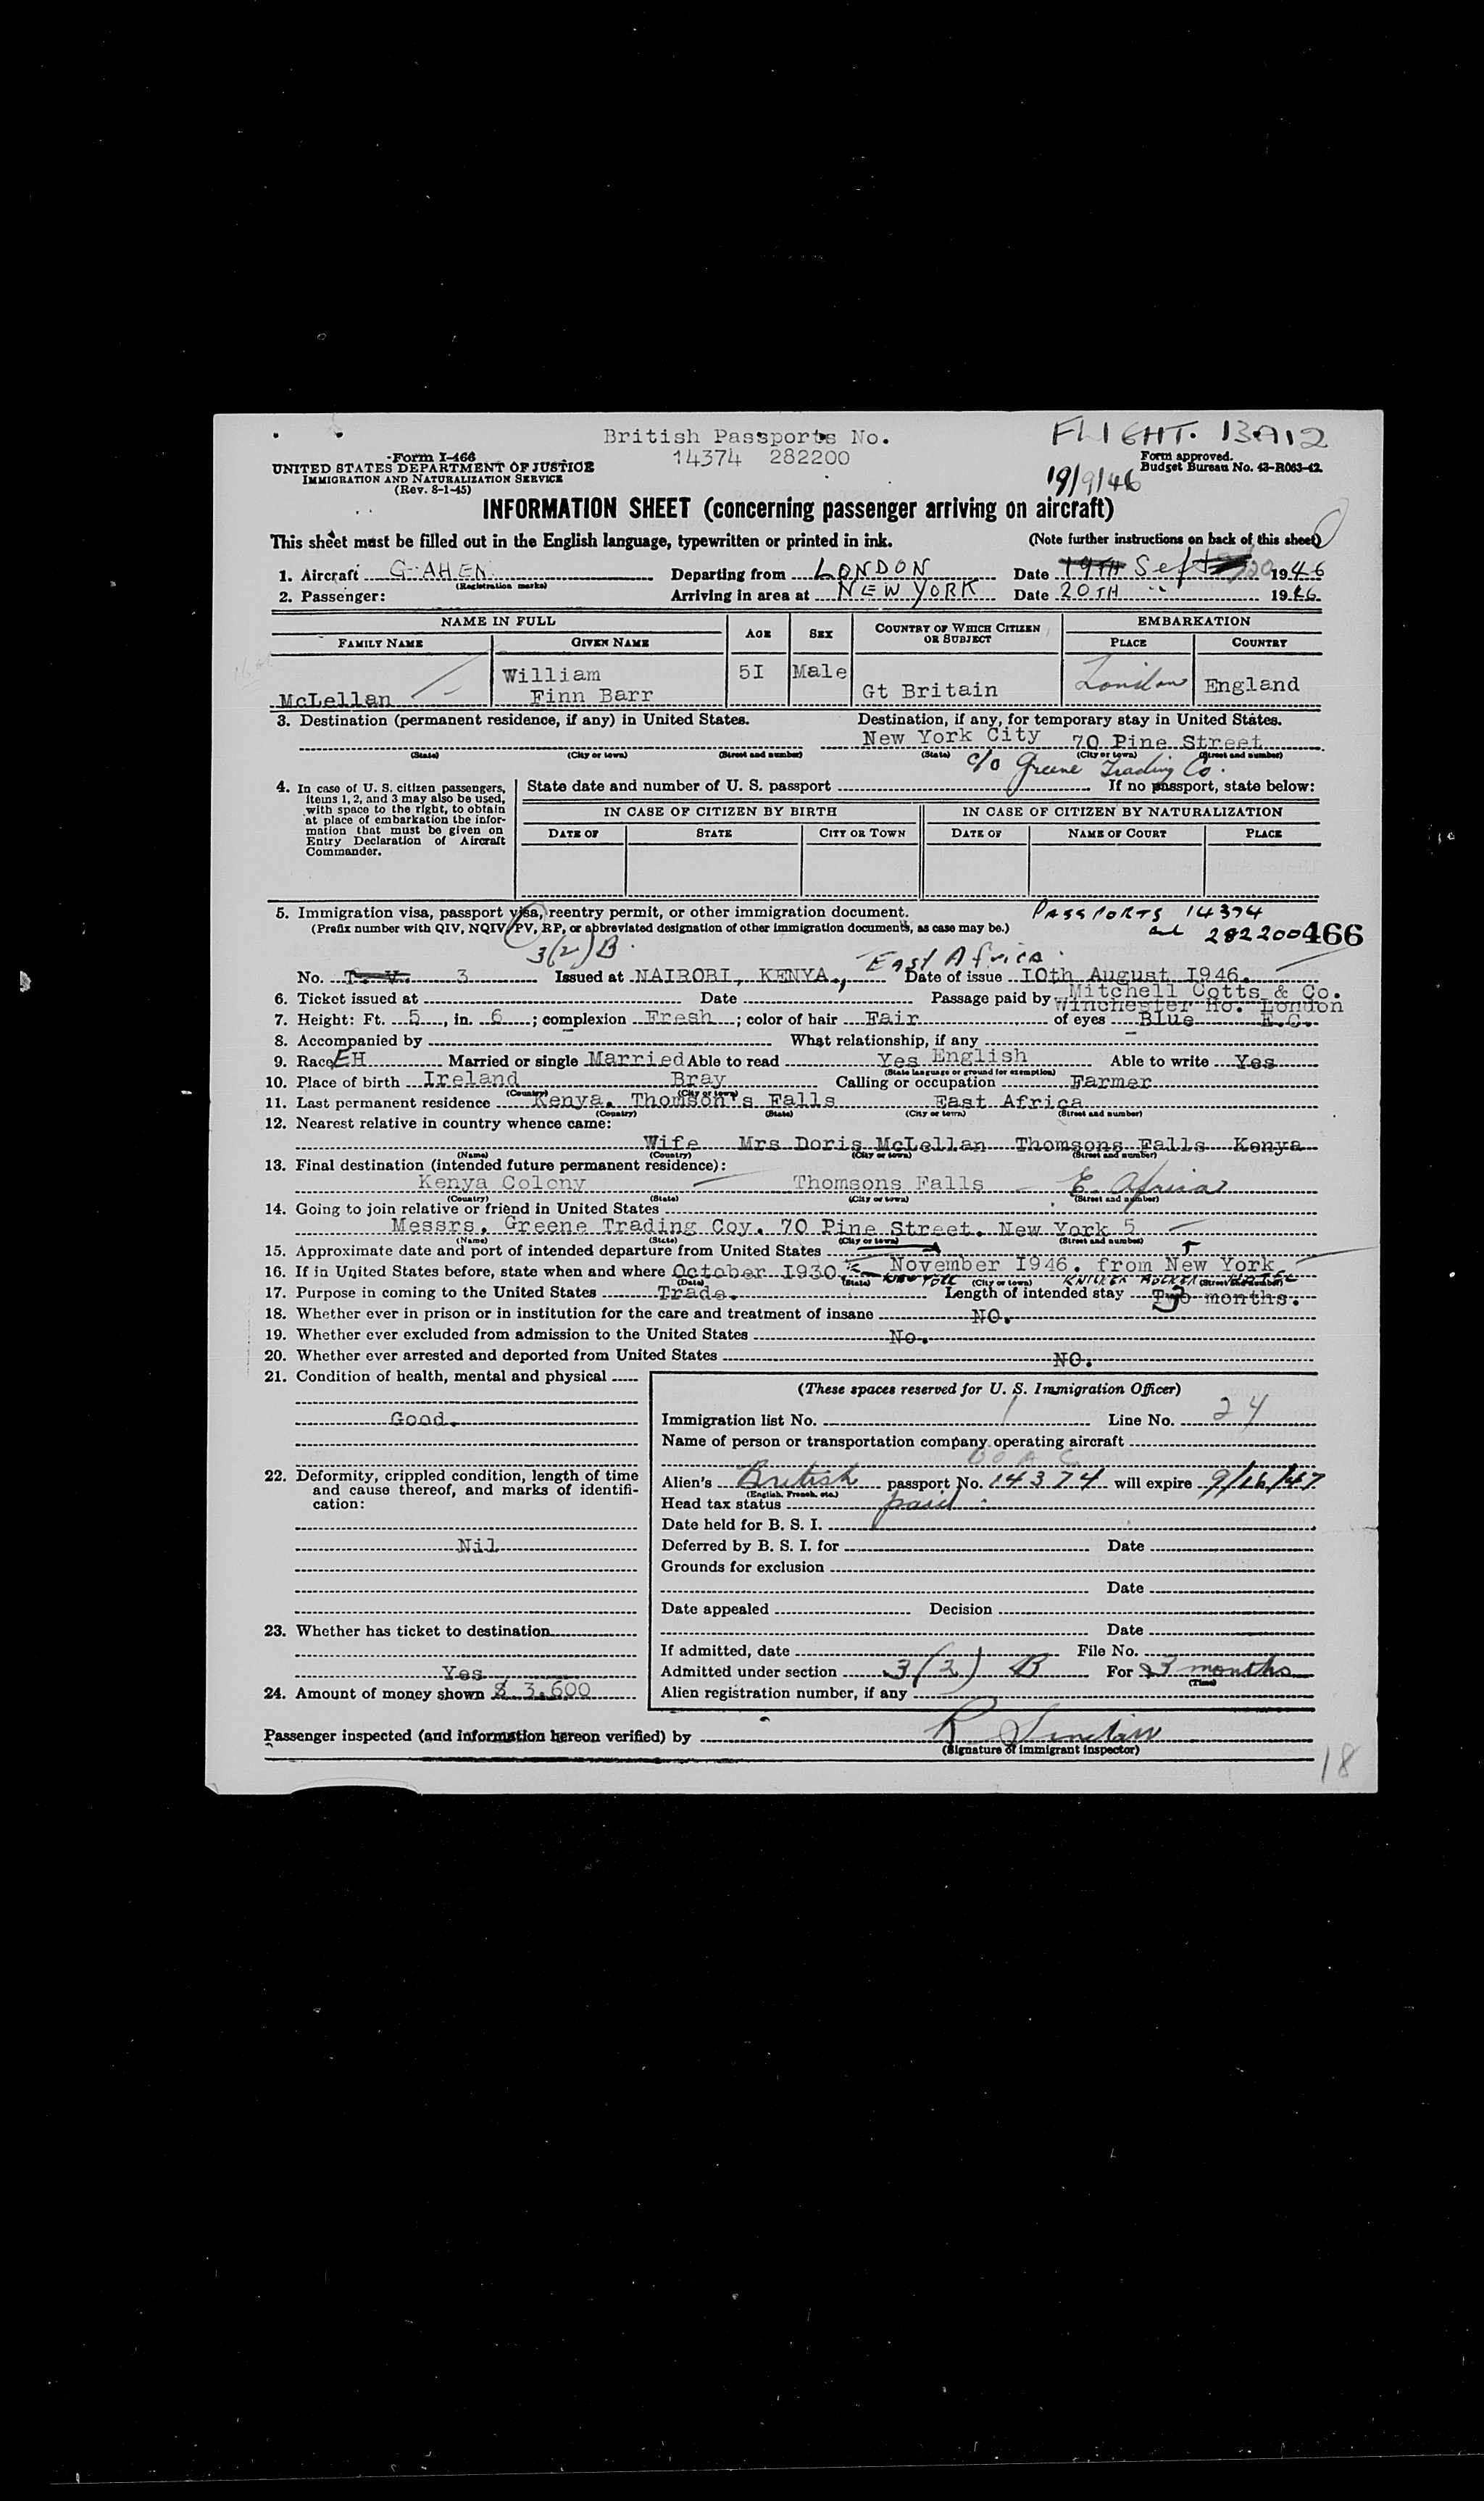 British Passports No.
14374 282200
FLIGHT. 13A12
19/9/46
Form I-466
UNITED STATES DEPARTMENT OF JUSTICE
IMMIGRATION AND NATURALIZATION SERVICE
(Rev. 8-1-45)
Form approved.
Budget Bureau No. 43-R063-42.
INFORMATION SHEET (concerning passenger arriving on aircraft)
This sheet must be filled out in the English language, typewritten or printed in ink. (Note further instructions on back of this sheet)
1. Aircraft G-AHEN Departing from LONDON Date 19TH Sept 1946
(Registration marks)
2. Passenger: Arriving in area at NEW YORK Date 20TH " 1946
NAME IN FULL AGE SEX COUNTRY OF WHICH CITIZEN OR SUBJECT EMBARKATION
FAMILY NAME GIVEN NAME PLACE COUNTRY
McLellan William Finn Barr 5I Male Gt Britain London England
3. Destination (permanent residence, if any) in United States. Destination, if any, for temporary stay in United States.
New York City 70 Pine Street
(State) (City or town) (Street and number) (State) (City or town) (Street and number)
c/o Greene Trading Co.
4. In case of U. S. citizen passengers, items 1, 2, and 3 may also be used, with space to the right, to obtain at place of embarkation the information that must be given on Entry Declaration of Aircraft Commander.
State date and number of U. S. passport If no passport, state below:
IN CASE OF CITIZEN BY BIRTH IN CASE OF CITIZEN BY NATURALIZATION
DATE OF STATE CITY OR TOWN DATE OF NAME OF COURT PLACE
5. Immigration visa, passport visa, reentry permit, or other immigration document. PASSPORTS 14374
(Prefix number with QIV, NQIV, PV, RP, or abbreviated designation of other immigration documents, as case may be.) and 282200 466
3(2)B. East Africa.
No. T. V. 3 Issued at NAIROBI, KENYA., Date of issue I0th August I946.
6. Ticket issued at Date Passage paid by Mitchell Cotts & Co.
Winchester Ho. London E.C.
7. Height: Ft. 5, in. 6; complexion Fresh; color of hair Fair of eyes Blue
8. Accompanied by What relationship, if any
9. Race EH Married or single Married Able to read Yes English Able to write Yes
(State language or ground for exemption)
10. Place of birth Ireland Bray Calling or occupation Farmer
(Country) (City or town)
11. Last permanent residence Kenya. Thomson's Falls East Africa
(Country) (State) (City or town) (Street and number)
12. Nearest relative in country whence came:
Wife Mrs Doris McLellan Thomsons Falls Kenya
(Name) (Country) (City or town) (Street and number)
13. Final destination (intended future permanent residence):
Kenya Colony Thomsons Falls E. Africa
(Country) (State) (City or town) (Street and number)
14. Going to join relative or friend in United States
Messrs. Greene Trading Coy. 70 Pine Street. New York 5
(Name) (State) (City or town) (Street and number)
15. Approximate date and port of intended departure from United States
November I946. from New York
16. If in United States before, state when and where October I930. NEW YORK KNICKER BOCKER HOTEL
(Date) (State) (City or town) (Street and number)
17. Purpose in coming to the United States Trade. Length of intended stay Two 3 months.
18. Whether ever in prison or in institution for the care and treatment of insane NO.
19. Whether ever excluded from admission to the United States No.
20. Whether ever arrested and deported from United States NO.
21. Condition of health, mental and physical
Good.
22. Deformity, crippled condition, length of time and cause thereof, and marks of identification:
Nil
23. Whether has ticket to destination
Yes
24. Amount of money shown $ 3,600
(These spaces reserved for U. S. Immigration Officer)
Immigration list No. 1 Line No. 24
Name of person or transportation company operating aircraft
BOAC
Alien's British passport No. 14374 will expire 9/16/47
(English, French, etc.)
Head tax status paid.
Date held for B. S. I.
Deferred by B. S. I. for Date
Grounds for exclusion
Date
Date appealed Decision
Date
If admitted, date File No.
Admitted under section 3(2) B For 3 months
(Time)
Alien registration number, if any
Passenger inspected (and information hereon verified) by R Sinclair
(Signature of immigrant inspector)
18